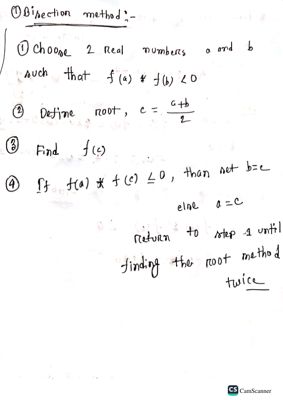 ① Bisection method:-
① Choose 2 real numbers a and b
such that f(a) * f(b) < 0
② Define root, c = a+b / 2
③ Find f(c)
④ If f(a) * f(c) ≤ 0, than set b=c
else a=c
return to step 1 until
finding the root method
twice
CS CamScanner